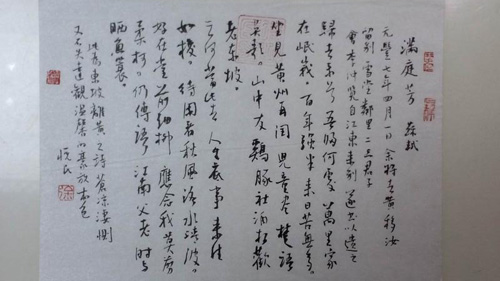 滿庭芳 蘇軾
元豐七年四月一日余將去黃移汝
留別雪堂鄰里二三君子
會李仲覽自江東來別遂書以遺之
歸去來兮吾歸何處萬里家
在岷峨百年強半來日苦無多
坐見黃州再閏兒童盡楚語
吳歌山中友雞豚社酒相勸
老東坡
云何當此去人生底事來往
如梭待閑看秋風洛水清波
好在堂前細柳應念我莫剪
柔柯仍傳語江南父老時與
晒漁蓑
此為東坡離黃之詩蒼涼淒惻
又不失達觀溫馨的豪放本色
悅民